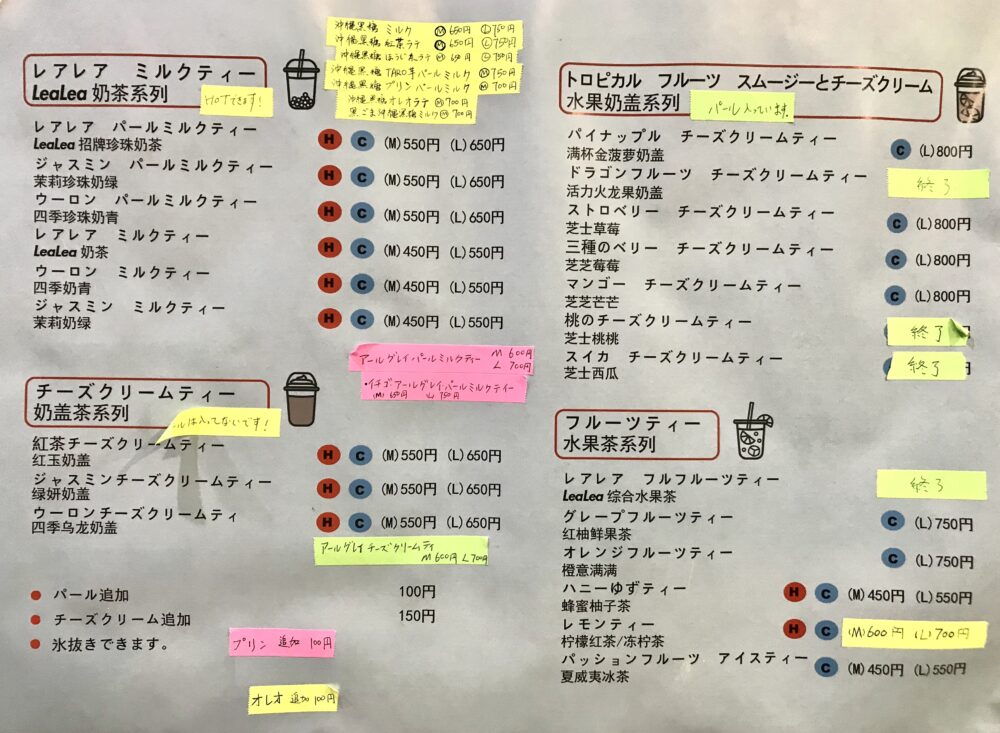 沖縄黒糖 ミルク Ⓜ650円 Ⓛ750円
沖縄黒糖 紅茶ラテ Ⓜ650円 Ⓛ750円
沖縄黒糖 ほうじ茶ラテ Ⓜ650円 Ⓛ750円
沖縄黒糖 TARO芋パールミルク Ⓜ750円
沖縄黒糖 プリンパールミルク Ⓜ700円
沖縄黒糖オレオラテ Ⓜ700円
黒ごま沖縄黒糖ミルク Ⓜ700円
レアレア ミルクティー
LeaLea 奶茶系列
HOTできます!
レアレア パールミルクティー
LeaLea 招牌珍珠奶茶
H C (M)550円 (L)650円
ジャスミン パールミルクティー
茉莉珍珠奶绿
H C (M)550円 (L)650円
ウーロン パールミルクティー
四季珍珠奶青
H C (M)550円 (L)650円
レアレア ミルクティー
LeaLea 奶茶
H C (M)450円 (L)550円
ウーロン ミルクティー
四季奶青
H C (M)450円 (L)550円
ジャスミン ミルクティー
茉莉奶绿
H C (M)450円 (L)550円
アールグレイパールミルクティー M 600円
L 700円
・イチゴアールグレイパールミルクティー
(M) 650円 (L) 750円
チーズクリームティー
奶盖茶系列
ルは入ってないです!
紅茶チーズクリームティー
红玉奶盖
H C (M)550円 (L)650円
ジャスミンチーズクリームティー
绿妍奶盖
H C (M)550円 (L)650円
ウーロンチーズクリームティ
四季乌龙奶盖
H C (M)550円 (L)650円
アールグレイチーズクリームティ
M 600円 L 700円
パール追加 100円
チーズクリーム追加 150円
氷抜きできます。
プリン 追加 100円
オレオ 追加 100円
トロピカル フルーツ スムージーとチーズクリーム
水果奶盖系列
パール入っています。
パイナップル チーズクリームティー
满杯金菠萝奶盖
C (L)800円
ドラゴンフルーツ チーズクリームティー
活力火龙果奶盖
終了
ストロベリー チーズクリームティー
芝士草莓
C (L)800円
三種のベリー チーズクリームティー
芝芝莓莓
C (L)800円
マンゴー チーズクリームティー
芝芝芒芒
C (L)800円
桃のチーズクリームティー
芝士桃桃
終了
スイカ チーズクリームティー
芝士西瓜
終了
フルーツティー
水果茶系列
レアレア フルフルーツティー
LeaLea 综合水果茶
終了
グレープフルーツティー
红柚鲜果茶
C (L)750円
オレンジフルーツティー
橙意满满
C (L)750円
ハニーゆずティー
蜂蜜柚子茶
H C (M)450円 (L)550円
レモンティー
柠檬红茶/冻柠茶
H C (M)600円 (L)700円
パッションフルーツ アイスティー
夏威夷冰茶
C (M)450円 (L)550円